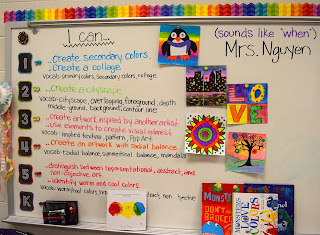 I can...
(sounds like "when")
Mrs. Nguyen
1
...Create secondary colors.
...Create a collage.
vocab: primary colors, secondary colors, collage
2
...Create a cityscape.
vocab: cityscape, overlapping, foreground, depth
middle ground, background, contour line
3
...Create artwork inspired by another artist.
...Use elements to create visual interest.
vocab: implied texture, pattern, Pop Art
4
...Create an artwork with radial balance.
vocab: radial balance, symmetrical balance, mandala
5
...distinguish between representational, abstract, and
non-objective art.
K
...identify warm and cool colors.
vocab: warm/cool colors,
LOVE